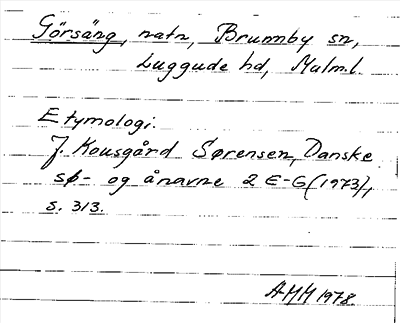 Görsäng, natn, Brunnby sn,
Luggude hd, Malm.l.
Etymologi:
J. Kousgård Sørensen, Danske
sø- og ånavne 2 E-G (1973),
s. 313.
AMM 1978.